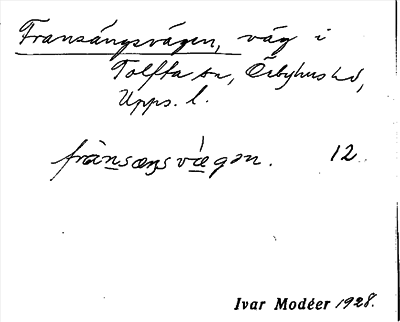 Fransängsvägen, väg i
Tolfta sn, Örbyhus hd,
Upps. l.
frànsæŋsvǽgən. 12.
Ivar Modéer 1928.